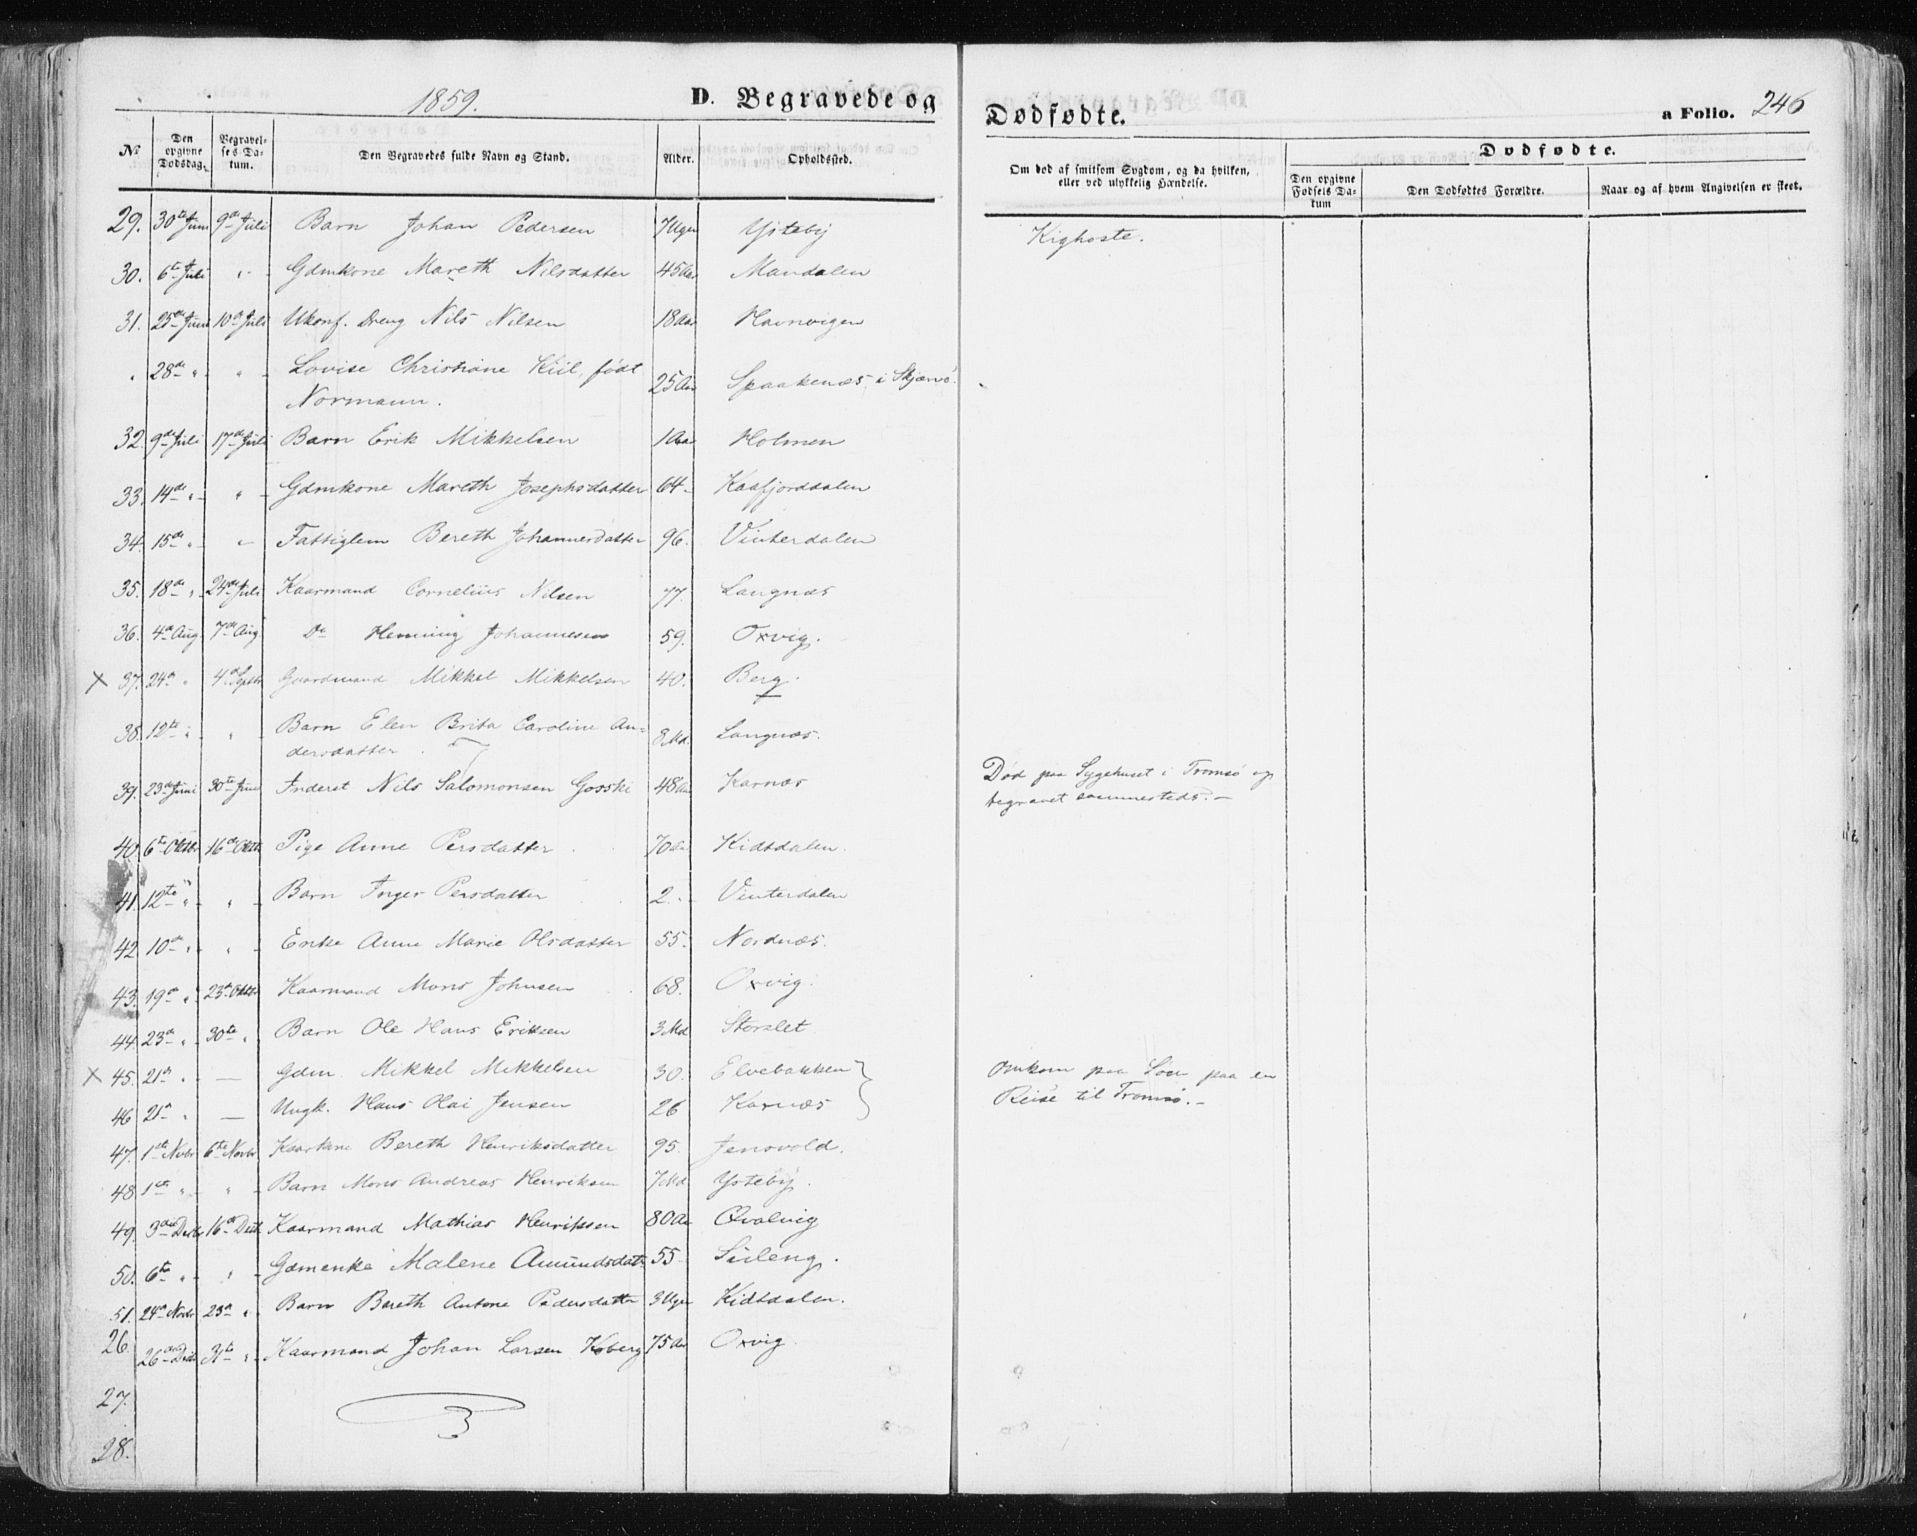 1859.
D. Begravede og
Dødfødte.
a Folio. 246
No Den opgivne Dødsdag. Begravelses Datum. Den Begravedes fulde Navn og Stand. Alder. Opholdssted. Om død af smitsom Sygdom, og da hvilken, eller ved ulykkelig Hændelse. Dødfødte. Den opgivne Fødsels Datum Den Dødfødtes Forældre. Naar og af hvem Angivelsen er skeet.
29. 30te Juni 9de Juli Barn Johan Pedersen 7 Uger Ysteby Kighoste.
30. 6te Juli " - Gdmkone Mareth Nilsdatter 45 Aar Mandalen
31. 25de Juni 10de Juli Ukonf. Dreng Nils Nilsen 18 Aar Havnvigen
" 28de " - " - Lovise Christiane Kiil, født 25 Aar Spaakenæs i Skjærvö.
Normann.
32. 9de Juli 17de Juli Barn Erik Mikkelsen 1 Aar Holmen
33. 14de " - " - Gdmkone Mareth Josephsdatter 64 - Kaafjorddalen
34. 15de " - " - Fattiglem Bereth Johannesdatter 96. Vinterdalen
35. 18de " - 24de Juli Kaarmand Cornelius Nilsen 77. Langnæs
36. 4de Aug. 7de Aug. Do Henning Johannesen 59. Oxvig.
X 37. 24de " 4de Septbr Gaardmand Mikkel Mikkelsen 40. Berg.
38. 12te " - " - Barn Elen Brita Caroline An=
dersdatter. 8 Md. Langnæs.
39. 23de Juni 30te Juni Inderst Nils Salomonsen Gosski 48 Aar Karnæs Død paa Sygehuset i Tromsö og
begravet sammesteds. -
40. 6te Oktbr 16de Oktbr Pige Anne Persdatter 70 Aar Kidsdalen.
41. 12te " - " - Barn Inger Persdatter 2. - Vinterdalen
42. 10de " - " - Enke Anne Marie Olsdatter 55. Nordnæs.
43. 19de " - 23de Oktbr Kaarmand Mons Johnsen 68. Oxvig.
44. 23de " - 30te " Barn Ole Hans Eriksen 3 Md Storslet
X 45. 21de " - — Gdm. Mikkel Mikkelsen 30. Elvebakken } Omkom paa Söen paa en
46. 21de " — Ungk. Hans Olai Jensen 26 Karnæs } Reise til Tromsö. -
47. 1ste Novbr 6te Novbr Kaarkone Bereth Henriksdatter 95. Jensvold.
48. 1ste " - " - Barn Mons Andreas Henriksen 7 Md Ysteby.
49. 3die Decbr 16de Decbr Kaarmand Mathias Henriksen 80 Aar Qvalvig
50. 6te " - " - Gdmenke Malene Amundsdatr 55 - Sieleng.
51. 24de Novbr 23de " - Barn Bereth Antone Pedersdatter 3 Uger Kidsdalen.
26. 26de Decbr 31te " - Kaarmand Johan Larsen Koberg 75 Aar Oxvig.
27.
28.